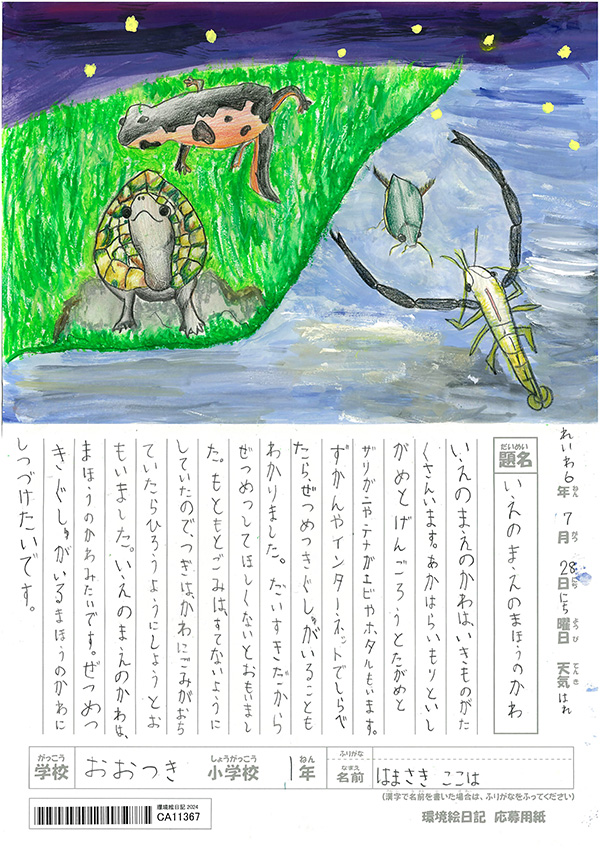 れいわ6年ねん 7月がつ 28日にち にち曜日ようび 天気てんき はれ
題名だいめい
いえのまえのまほうのかわ
いえのまえのかわは、いきものがた
くさんいます。あかはらいもりといし
がめとげんごろうとたがめと
ザリガニやテナガエビやホタルもいます。
ずかんやインターネットでしらべ
たら、ぜつめつきぐしゅがいることも
わかりました。だいすきだから
ぜつめつしてほしくないとおもいまし
た。もともとごみは、すてないように
していたので、つぎは、かわにごみがおち
ていたらひろうようにしようとお
もいました。いえのまえのかわは、
まほうのかわみたいです。ぜつめつ
きぐしゅがいるまほうのかわに
しつづけたいです。
学校がっこう おおつき 小学校しょうがっこう 1年ねん
ふりがな
名前なまえ はまさき ここは
(漢字で名前を書いた場合は、ふりがなをふってください)
環境絵日記 2024
CA11367
環境絵日記 応募用紙